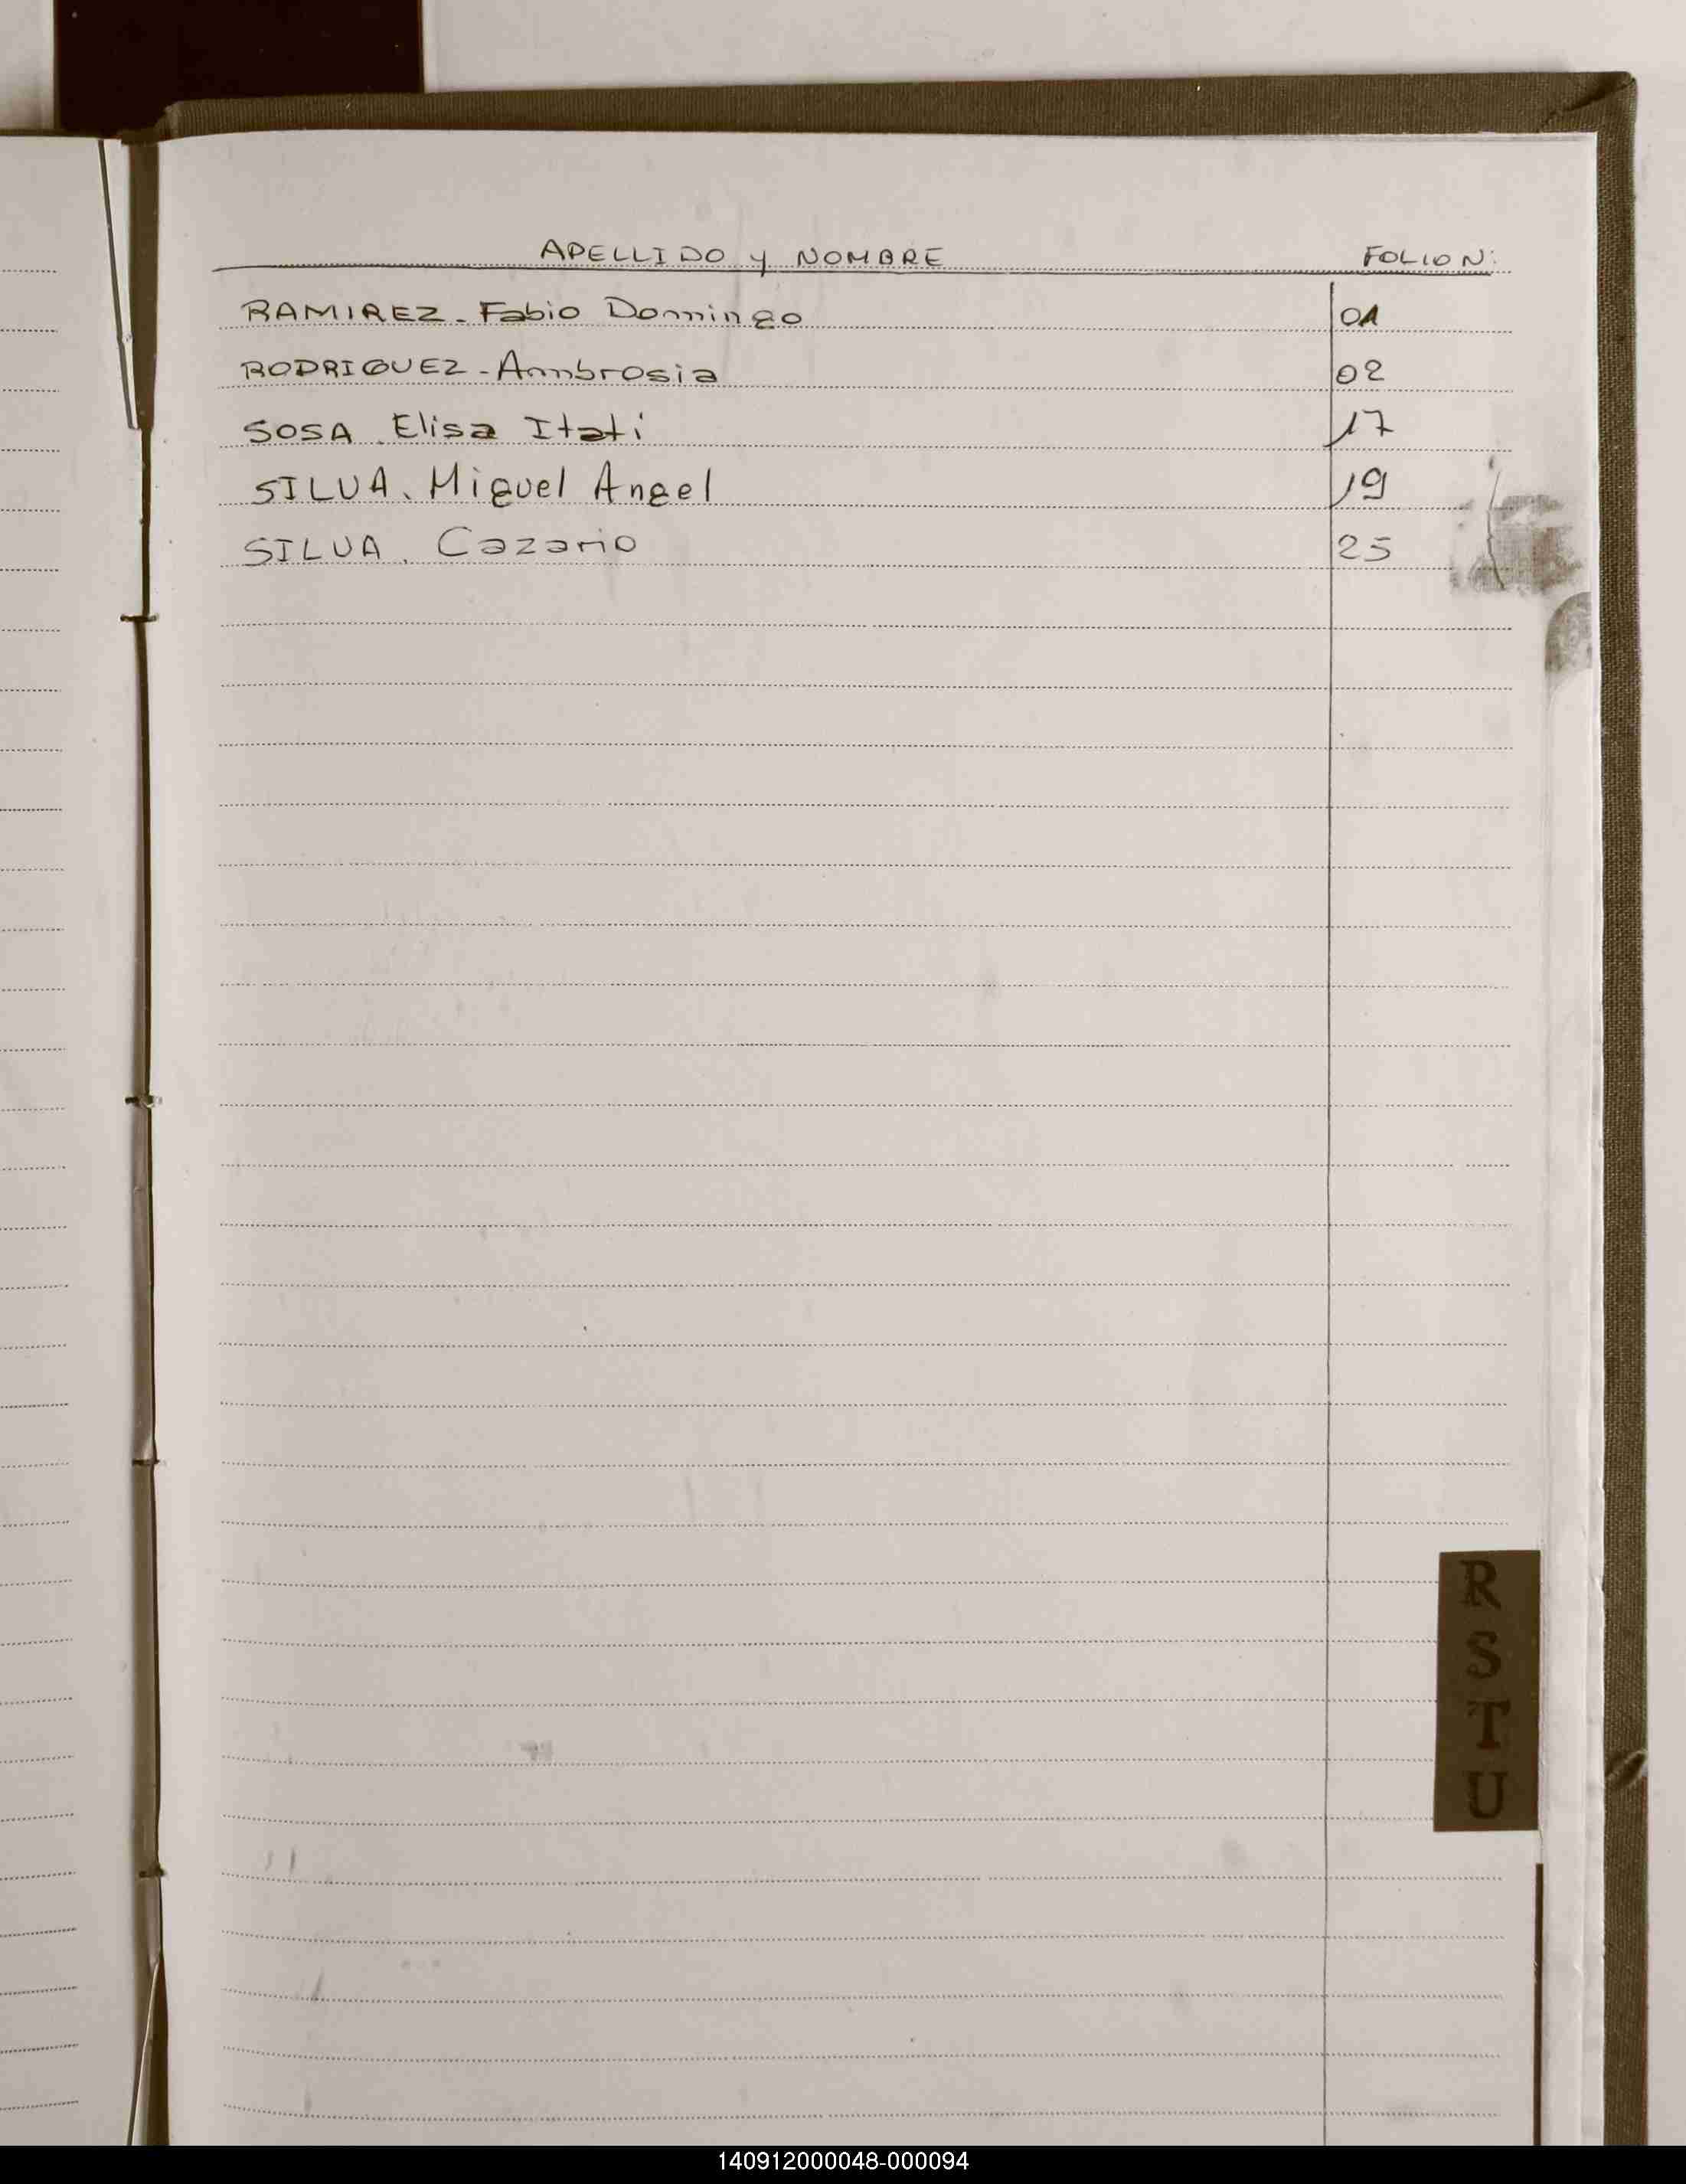 APELLIDO y NOMBRE FOLIO N:
RAMIREZ - Fabio Domingo 01
RODRIGUEZ - Ambrosia 02
SOSA. Elisa Itati 17
SILVA. Miguel Angel 19
SILVA. Cazario 25
R
S
T
U
140912000048-000094